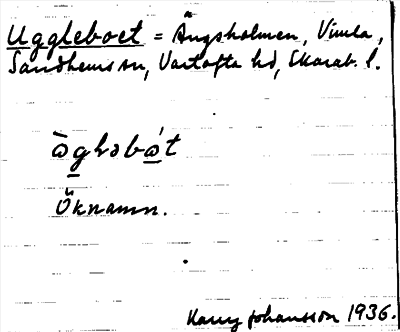 Uggleboet = Ängsholmen, Vimla,
Sandhems sn, Vartofta hd, Skarab. l.
ὼgləbώt
Öknamn.
Harry Johansson 1936.